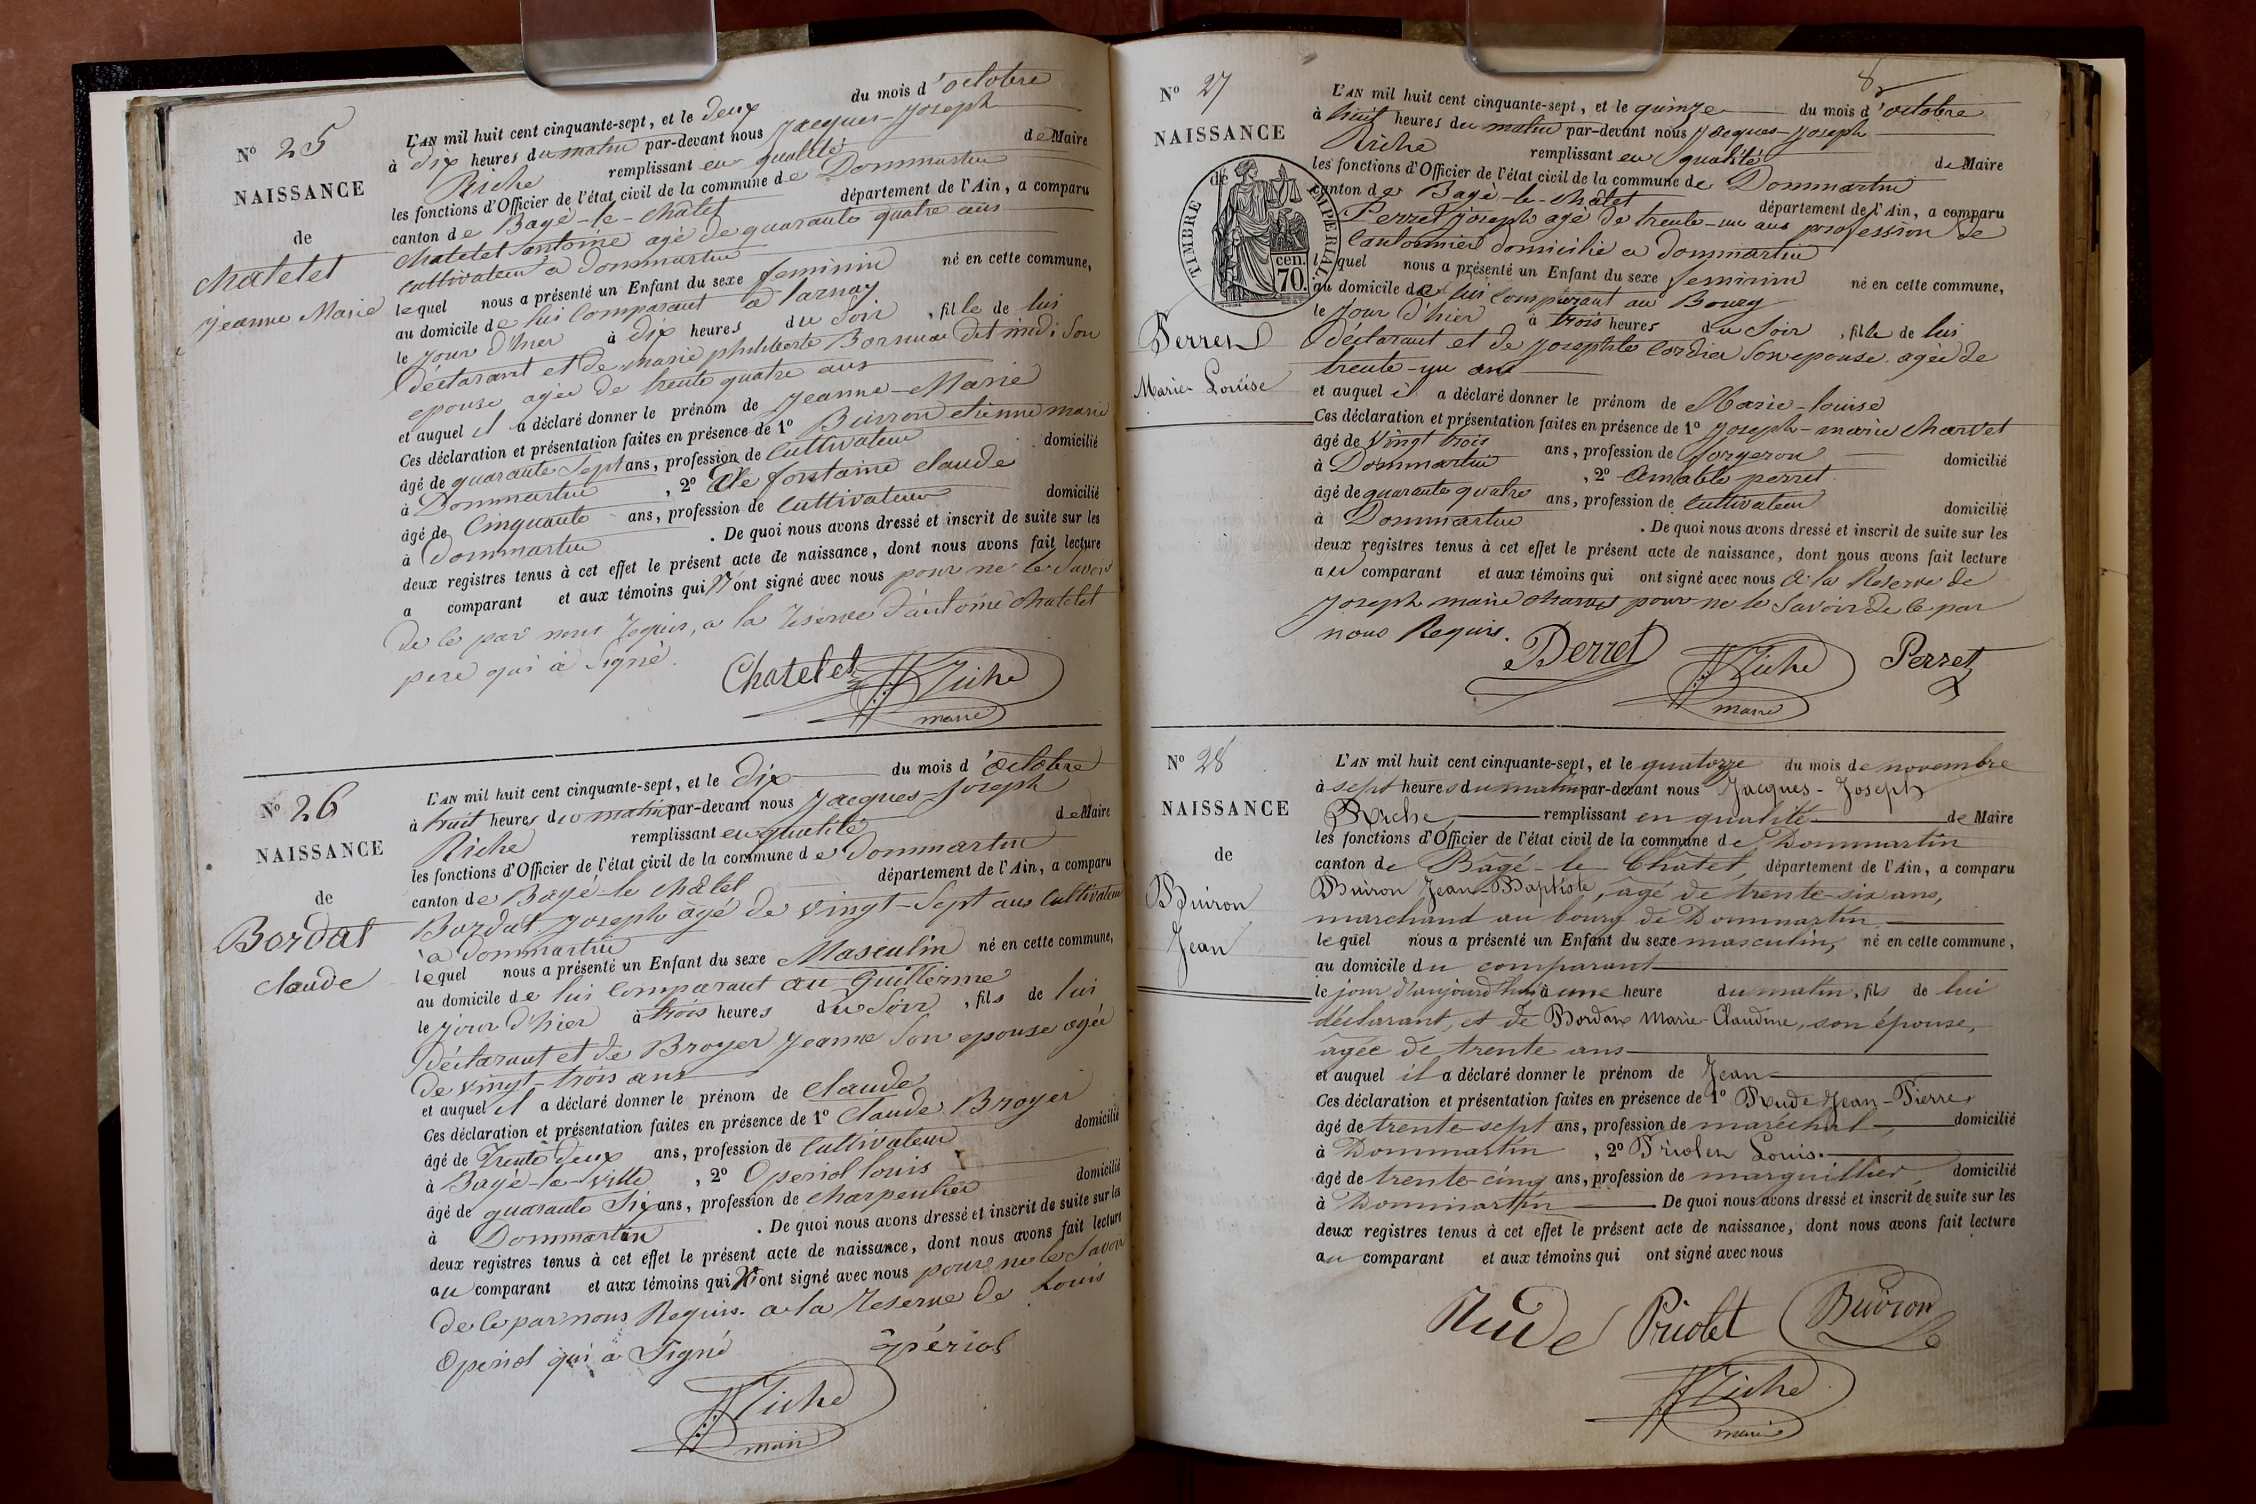 N° 25
NAISSANCE
de
chatelet
jeanne Marie
L'AN mil huit cent cinquante-sept, et le deux du mois d'octobre
à dix heures du matin par-devant nous jacques-joseph
Riche remplissant en qualité de Maire
les fonctions d'Officier de l'état civil de la commune de Dommartin
canton de Bagé-le-châtel département de l'Ain, a comparu
chatelet antoine agé de quarante quatre ans
cultivateur a dommartin
lequel nous a présenté un Enfant du sexe feminin né en cette commune,
au domicile de lui comparant a larnay
le jour d'hier à dix heures du soir, fille de lui
déclarant et de marie philiberte dit midi son
epouse agée de trente quatre ans
et auquel il a déclaré donner le prénom de jeanne-Marie
Ces déclaration et présentation faites en présence de 1° Buiron etienne marie
âgé de quarante sept ans, profession de cultivateur domicilié
à Dommartin, 2° De fontaine claude
âgé de Cinquante ans, profession de cultivateur domicilié
à Dommartin. De quoi nous avons dressé et inscrit de suite sur les
deux registres tenus à cet effet le présent acte de naissance, dont nous avons fait lecture
a comparant et aux témoins qui n'ont signé avec nous pour ne le savoir
de ce par nous requis, a la reserve d'antoine chatelet
pere qui à signé.
Chatelet Riche
maire
N° 26
NAISSANCE
de
Bordat
claude
L'AN mil huit cent cinquante-sept, et le dix du mois d'octobre
à huit heures du matin par-devant nous jacques-joseph
Riche remplissant en qualité de Maire
les fonctions d'Officier de l'état civil de la commune de Dommartin
canton de Bagé-le châtel département de l'Ain, a comparu
Bordat joseph âgé de vingt-sept ans cultivateur
a dommartin
lequel nous a présenté un Enfant du sexe Masculin né en cette commune,
au domicile de lui comparant au Guillerme
le jour d'hier à trois heures du soir, fils de lui
déclarant et de Broyer jeanne son epouse agée
de vingt-trois ans
et auquel il a déclaré donner le prénom de claude
Ces déclaration et présentation faites en présence de 1° claude Broyer
âgé de Trente deux ans, profession de cultivateur domicilié
à Bagé-la-ville, 2° Operiol louis
âgé de quarante six ans, profession de charpentier domicilié
à Dommartin. De quoi nous avons dressé et inscrit de suite sur les
deux registres tenus à cet effet le présent acte de naissance, dont nous avons fait lecture
au comparant et aux témoins qui n'ont signé avec nous pour ne le savoir
de ce par nous Requis. a la reserve de Louis
Operiol qui a signé opériol
Riche
maire
8
N° 27
NAISSANCE
de
TIMBRE IMPERIAL
cen.
70.
Perret
Marie Louise
L'AN mil huit cent cinquante-sept, et le quinze du mois d'octobre
à huit heures du matin par-devant nous jacques-joseph
Riche remplissant en qualité de Maire
les fonctions d'Officier de l'état civil de la commune de Dommartin
canton de Bagé-le-châtel département de l'Ain, a comparu
Perret joseph agé de trente-un ans profession de
Cantonnier domicilié a dommartin
lequel nous a présenté un Enfant du sexe feminin né en cette commune,
au domicile de lui comparant au Bourg
le jour d'hier à trois heures du soir, fille de lui
déclarant et de josephte Cordier son epouse agée de
trente-un ans
et auquel il a déclaré donner le prénom de Marie-louise
Ces déclaration et présentation faites en présence de 1° joseph-marie charvet
âgé de vingt trois ans, profession de forgeron domicilié
à Dommartin, 2° amable perret
âgé de quarante quatre ans, profession de cultivateur domicilié
à Dommartin. De quoi nous avons dressé et inscrit de suite sur les
deux registres tenus à cet effet le présent acte de naissance, dont nous avons fait lecture
au comparant et aux témoins qui ont signé avec nous à la Réserve de
joseph marie charvet pour ne le savoir de ce par
nous Requis.
Perret Riche Perret
maire
N° 28
NAISSANCE
de
Buiron
Jean
L'AN mil huit cent cinquante-sept, et le quatorze du mois de novembre
à sept heures du matin par-devant nous Jacques-Joseph
Riche, remplissant en qualité de Maire
les fonctions d'Officier de l'état civil de la commune de Dommartin
canton de Bâgé-le Châtel, département de l'Ain, a comparu
Buiron Jean-Baptiste, âgé de trente-six ans,
marchand au bourg de Dommartin
lequel nous a présenté un Enfant du sexe masculin, né en cette commune,
au domicile du comparant
le jour d'aujourd'hui à une heure du matin, fils de lui
déclarant, et de Bordat Marie-Claudine, son épouse,
âgée de trente ans
et auquel il a déclaré donner le prénom de Jean
Ces déclaration et présentation faites en présence de 1° Rude Jean-Pierre
âgé de trente-sept ans, profession de maréchal, domicilié
à Dommartin, 2° Priolet Louis.
âgé de trente-cinq ans, profession de marguillier, domicilié
à Dommartin De quoi nous avons dressé et inscrit de suite sur les
deux registres tenus à cet effet le présent acte de naissance, dont nous avons fait lecture
au comparant et aux témoins qui ont signé avec nous
Rude Priolet Buiron
Riche
maire